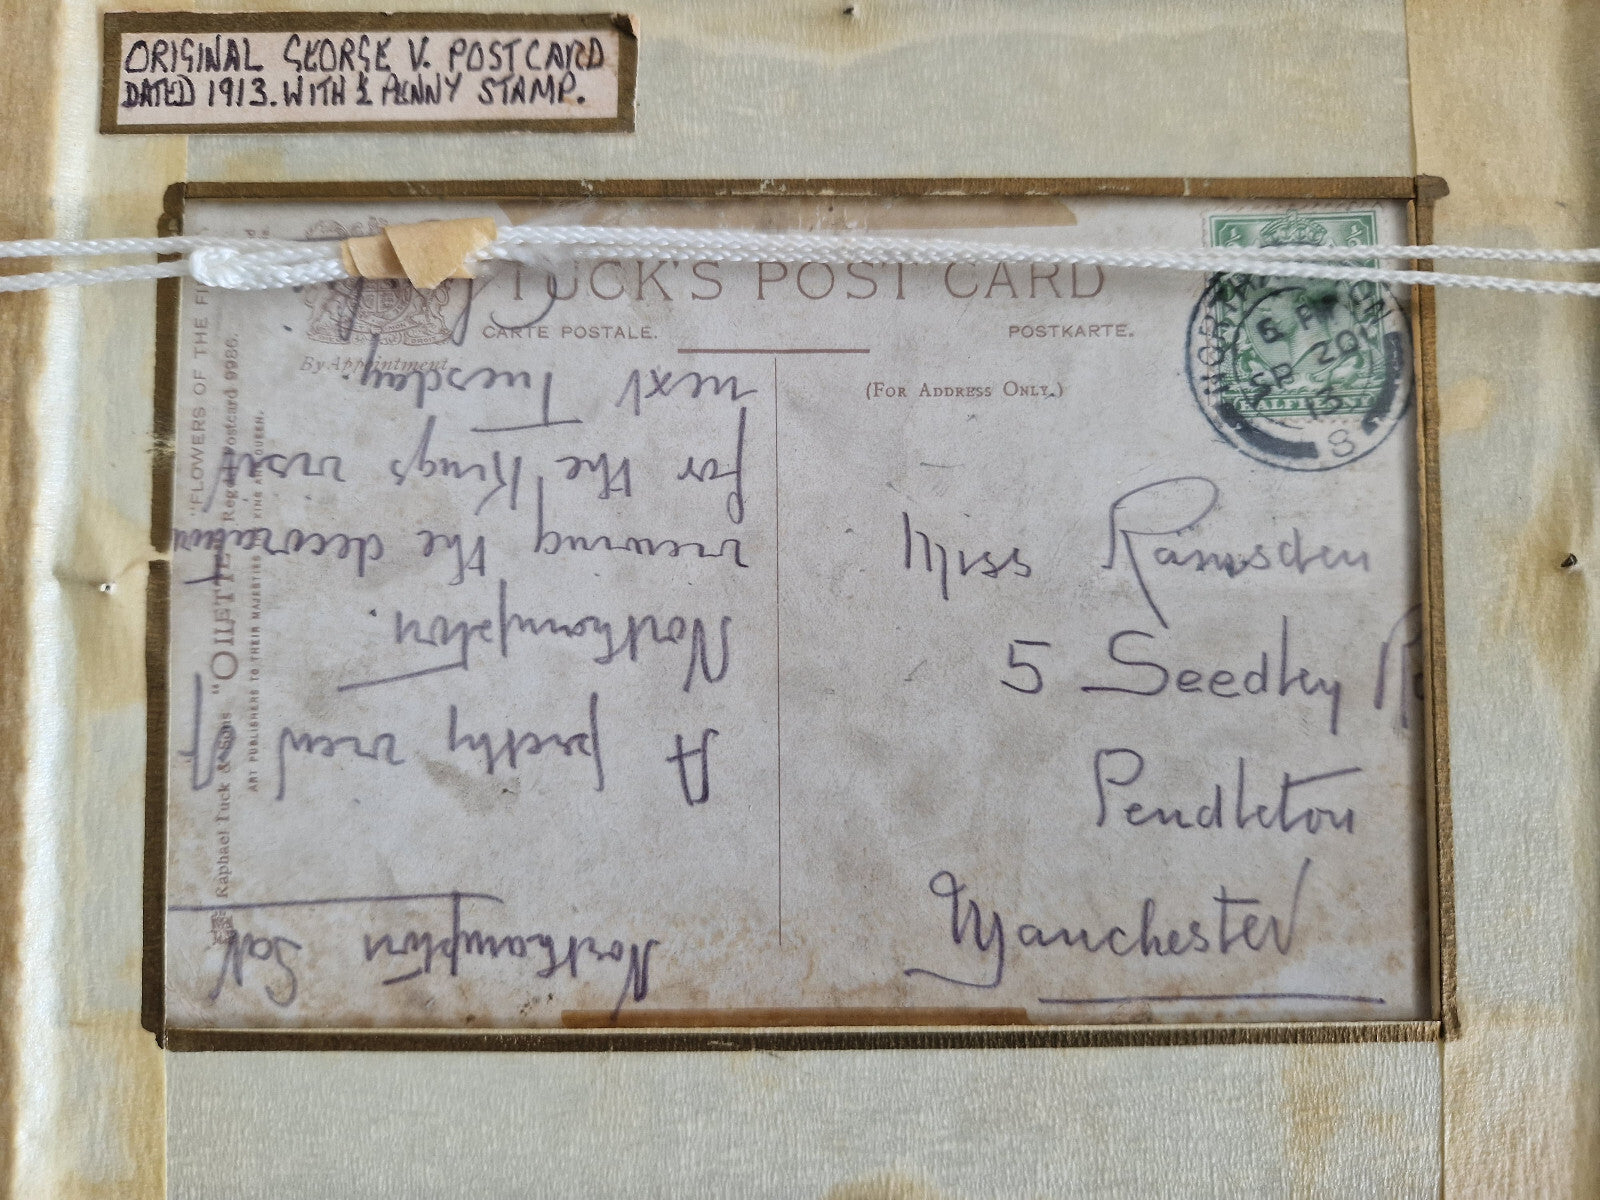 ORIGINAL GEORGE V. POSTCARD
DATED 1913. WITH ½ PENNY STAMP.
TUCK'S POST CARD
CARTE POSTALE. POSTKARTE.
By Appointment
(FOR ADDRESS ONLY.)
½
NORTHAMPTON
6 PM
20
SP
13
8
HALFPENNY
Miss Ramsden
5 Seedley
Pendleton
Manchester
Northampton Sat
A pretty view of
Northampton.
viewing the decorations
for the Kings visit
next Tuesday.
"FLOWERS OF THE
Raphael Tuck & Sons "OILETTE" Regd Postcard 9986.
ART PUBLISHERS TO THEIR MAJESTIES THE KING AND QUEEN.